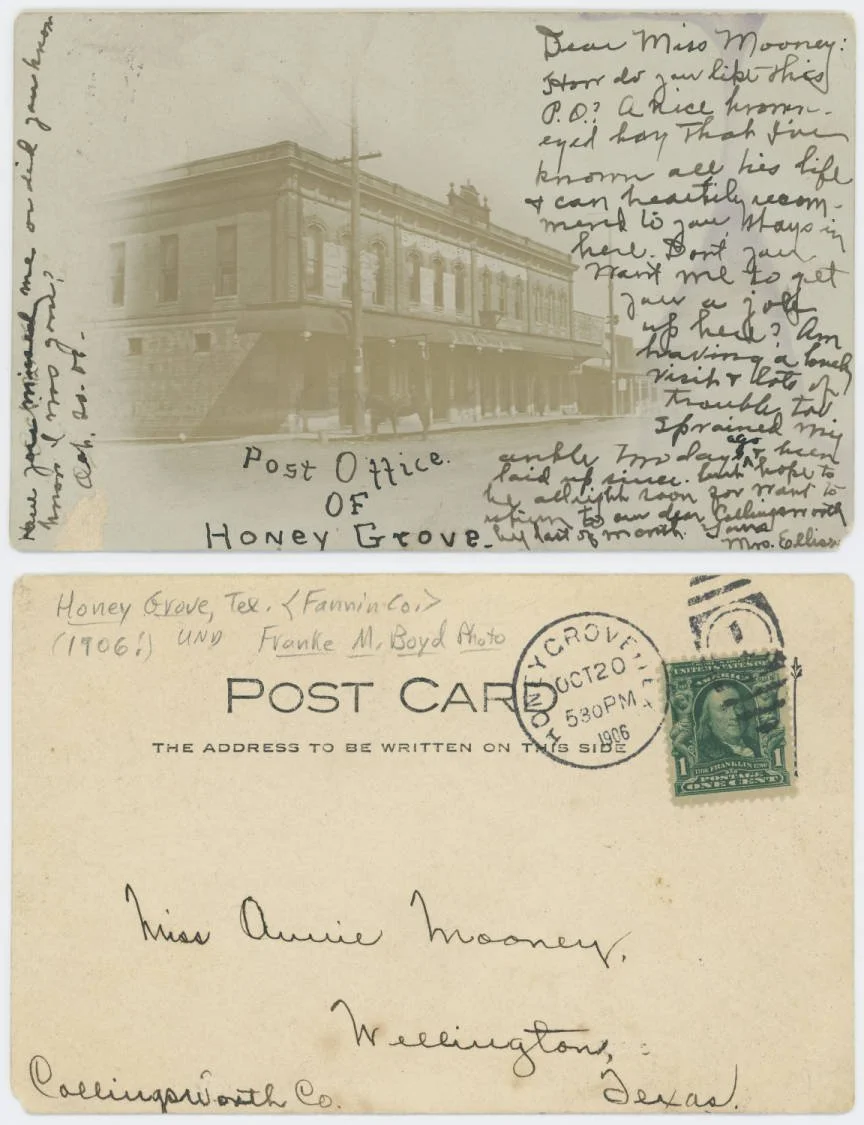 Dear Miss Mooney:
How do you like this
P.O.? A nice brown-
eyed boy that I've
known all his life
& can heartily recom-
mend to you stays in
here. Don't you
want me to get
you a job
up here? Am
having a lovely
visit & lots of
trouble too
Sprained my
ankle two days ago & been
laid up since. but hope to
be allright soon for want to
return to our dear Collingsworth
by last of month. Yours
Mrs. Ellis
Have you missed me or did you know
know I was gone?
Oct. 20. 06-
Post Office.
OF
Honey Grove-
Honey Grove, Tex. <Fannin Co.>
(1906!) UND Franke M. Boyd Photo
POST CARD
THE ADDRESS TO BE WRITTEN ON THIS SIDE
HONEY GROVE TEX
OCT 20
530 PM
1906
1
UNITED STATES OF
AMERICA
1706 FRANKLIN 1790
1 POSTAGE 1
ONE CENT
Miss Annie Mooney,
Wellington,
Collingsworth Co. Texas.